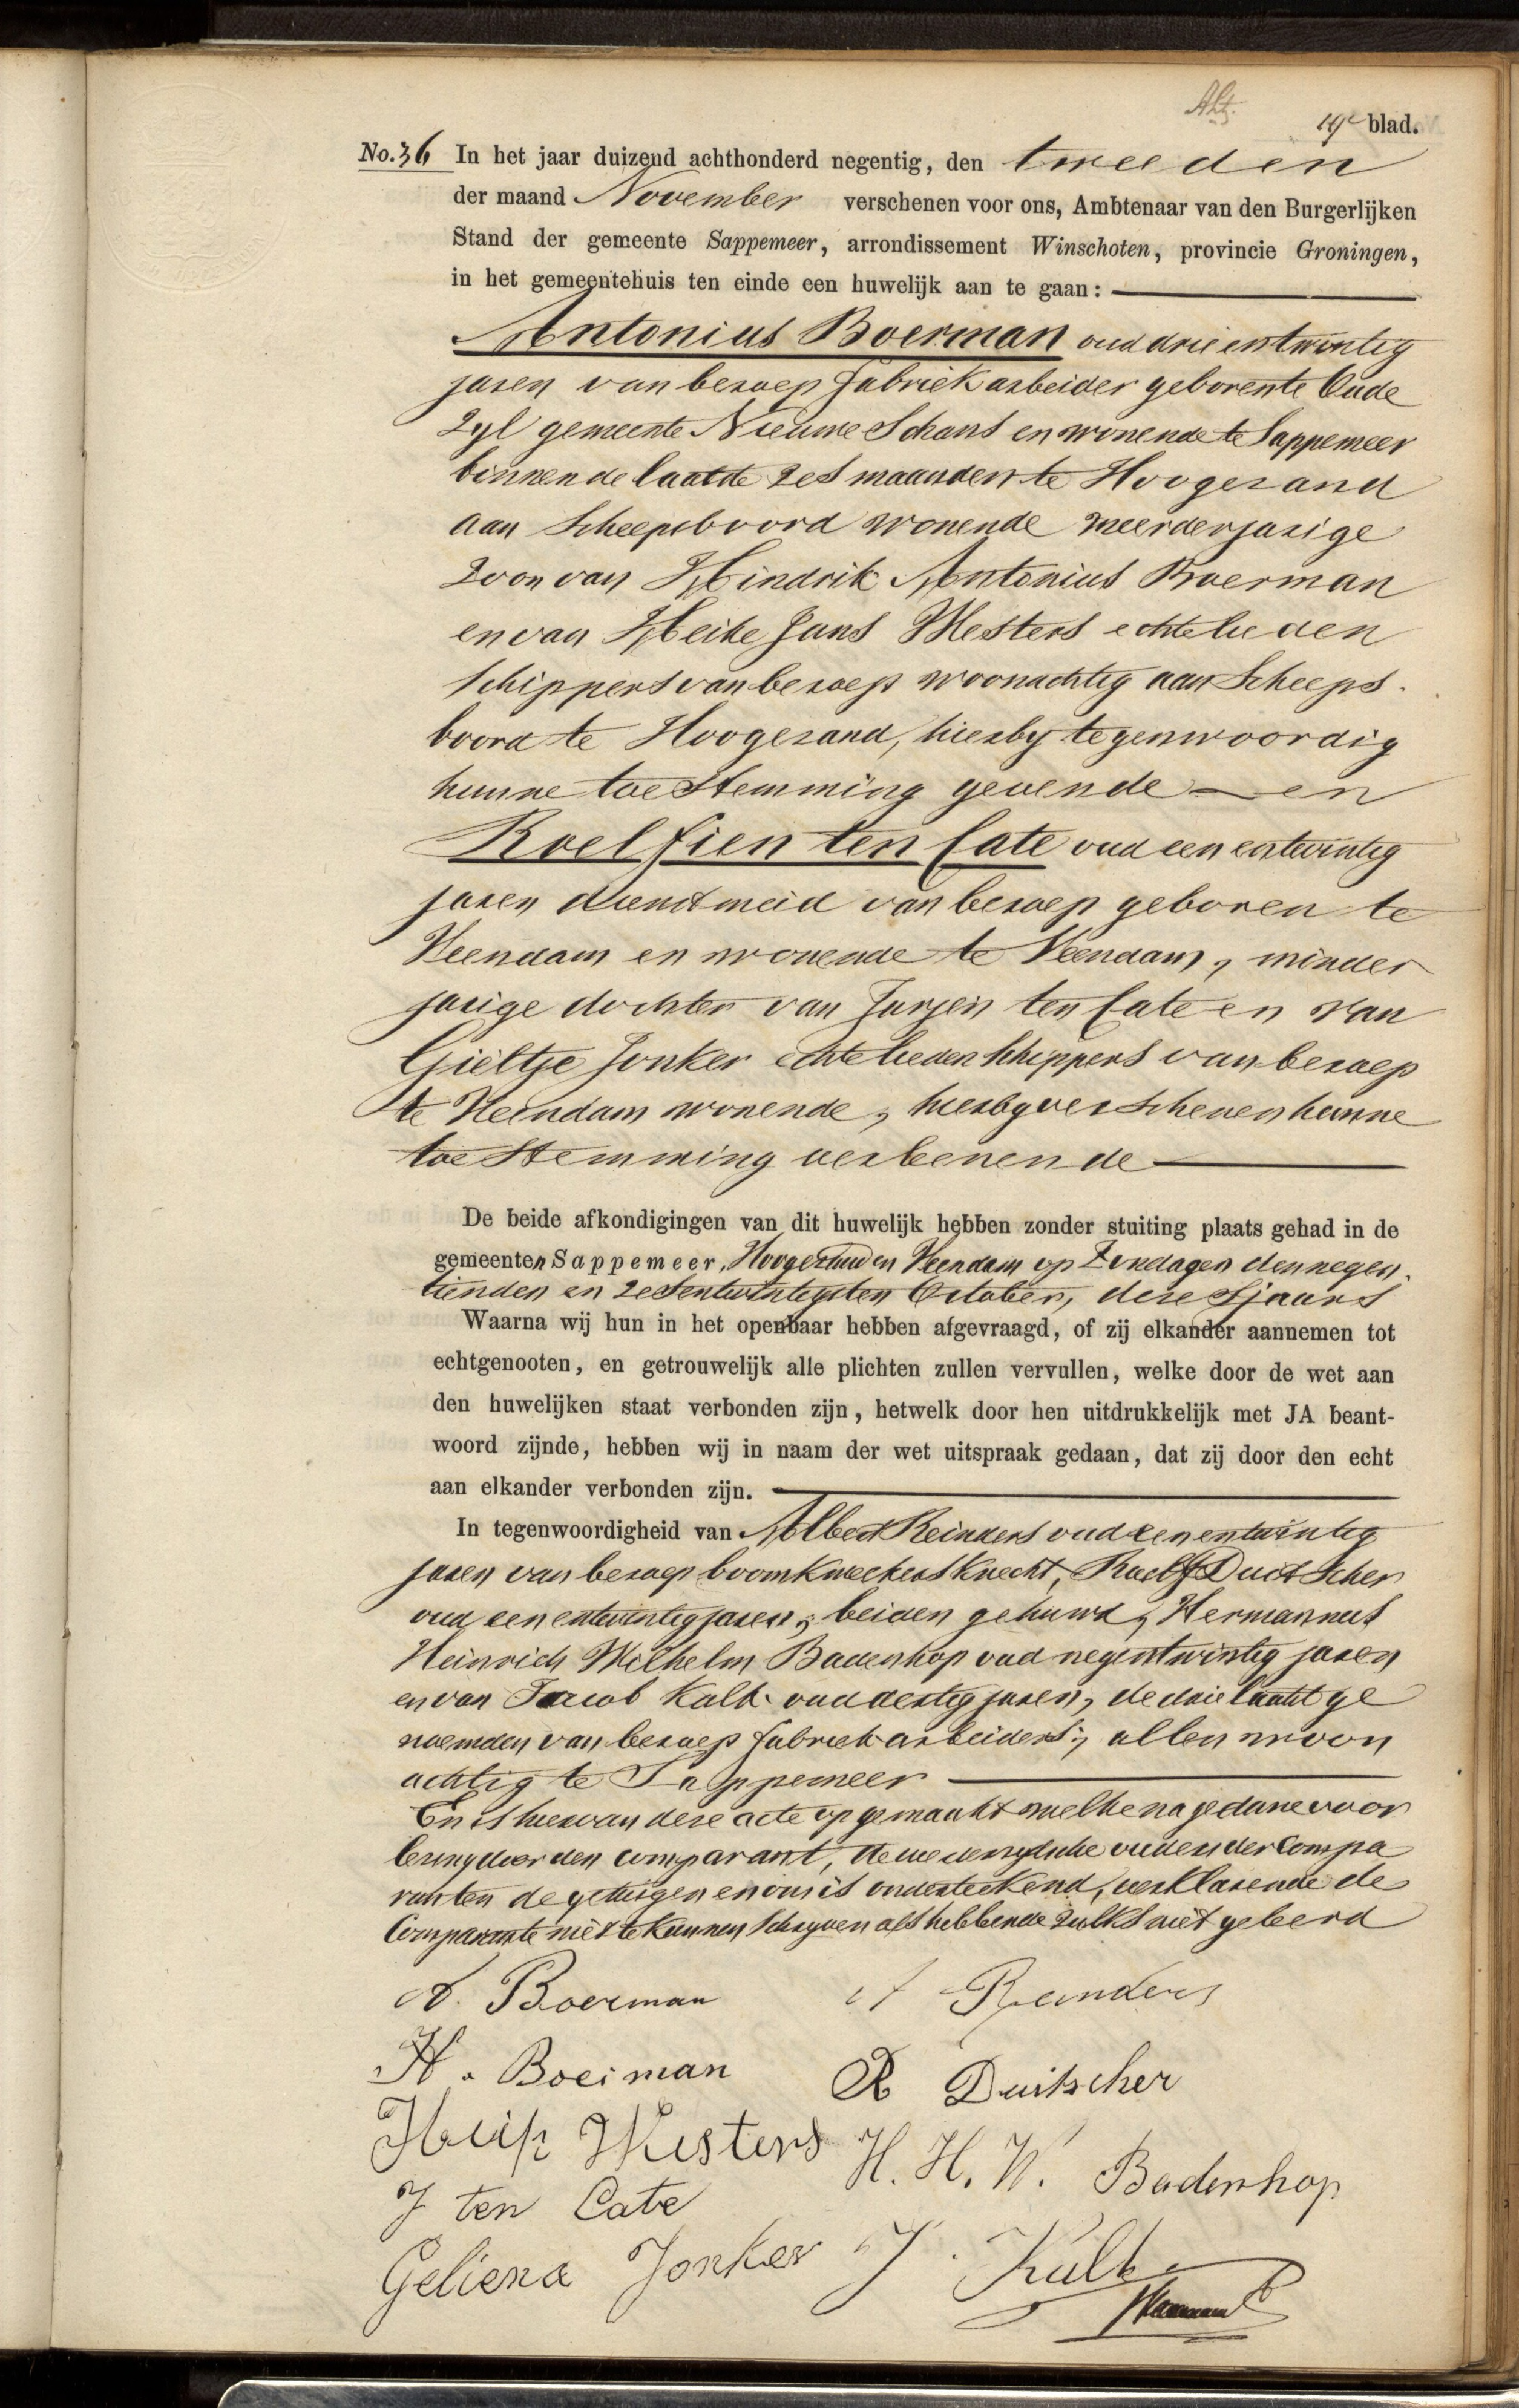 19e blad.
No. 36 In het jaar duizend achthonderd negentig, den tweeden
der maand November verschenen voor ons, Ambtenaar van den Burgerlijken
Stand der gemeente Sappemeer, arrondissement Winschoten, provincie Groningen,
in het gemeentehuis ten einde een huwelijk aan te gaan:
Antonius Boerman oud drie entwintig
jaren van beroep fabriekarbeider geboren te Oude
Zyl gemeente Nieuwe Schans en wonende te Sappemeer
binnen de laatste zes maanden te Hoogezand
aan Scheepsboord wonende meerderjarige
Zoon van Hindrik Antonius Boerman
en van Heike Jans Westers echtelieden
schippers van beroep woonachtig aan Scheeps-
boord te Hoogezand, hierby tegenwoordig
hunne toestemming gevende — en
Roelfien ten Cate oud een entwintig
jaren dienstmeid van beroep geboren te
Veendam en wonende te Veendam, minder
jarige dochter van Jurjen ten Cate en van
Gieltje Jonker echtelieden schippers van beroep
te Veendam wonende, hierby verschenen hunne
toestemming verleenende
De beide afkondigingen van dit huwelijk hebben zonder stuiting plaats gehad in de
gemeenten Sappemeer, Hoogezand en Veendam op Zondagen den negen-
tienden en zesentwintigsten October, dezes jaars
Waarna wij hun in het openbaar hebben afgevraagd, of zij elkander aannemen tot
echtgenooten, en getrouwelijk alle plichten zullen vervullen, welke door de wet aan
den huwelijken staat verbonden zijn, hetwelk door hen uitdrukkelijk met JA beant-
woord zijnde, hebben wij in naam der wet uitspraak gedaan, dat zij door den echt
aan elkander verbonden zijn.
In tegenwoordigheid van Albert Reinders oud een entwintig
jaren van beroep boomkweekersknecht, Roelf Duitscher
oud een entwintig jaren, beiden gehuwd, Hermannus
Heinrich Wilhelm Badenhop oud negentwintig jaren
en van Jacob Kalk oud dertig jaren, de drie laatst ge
noemden van beroep fabriekarbeiders, allen woon
achtig te Sappemeer
En is hiervan deze acte opgemaakt welke na gedane voor
lezing door den comparant, de wederzydsche ouders der Compa
ranten de getuigen en ons is onderteekend, verklarende de
Comparante niet te kunnen schryven als hebbende zulks niet geleerd
A. Boerman A Reinders
H. Boerman R Duitscher
Westers H. H. W. Badenhop
J ten Cate
Geliena Jonker J.